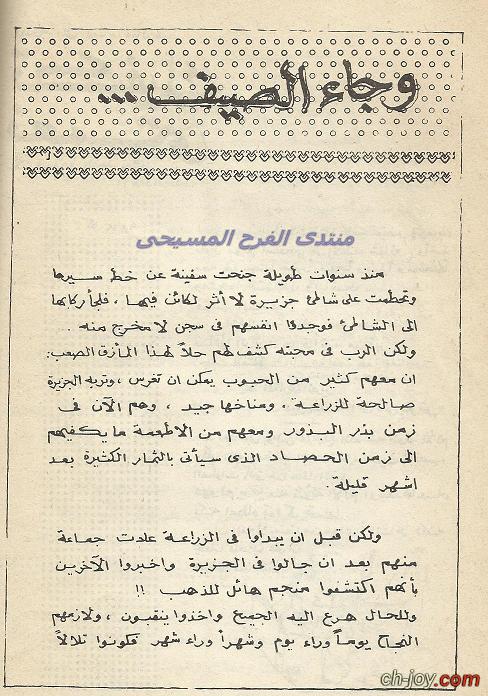 وجاء الصيف ...
منتدى الفرح المسيحى
منذ سنوات طويلة جنحت سفينة عن خط سيرها
وتحطمت على شاطئ جزيرة لا أثر لكائن فيها ، فلجأ ركابها
الى الشاطئ فوجدوا انفسهم فى سجن لا مخرج منه ..
ولكن الرب فى محبته كشف لهم حلاً لهذا المأزق الصعب:
ان معهم كثير من الحبوب يمكن ان تغرس ، وتربه الجزيرة
صالحة للزراعة ، ومناخها جيد ، وهم الآن فى
زمن بذر البذور ومعهم من الاطعمة ما يكفيهم
الى زمن الحصاد الذى سيأتى بالثمار الكثيرة بعد
اشهر قليلة .
ولكن قبل ان يبداوا فى الزراعة عادت جماعة
منهم بعد ان جالوا فى الجزيرة واخبروا الآخرين
بأنهم اكتشفوا منجم هائل للذهب !!
وللحال هرع اليه الجميع واخذوا ينقبون ، ولازمهم
النجاح يوماً وراء يوم وشهراً وراء شهر فكونوا تلالاً
ch-joy.com